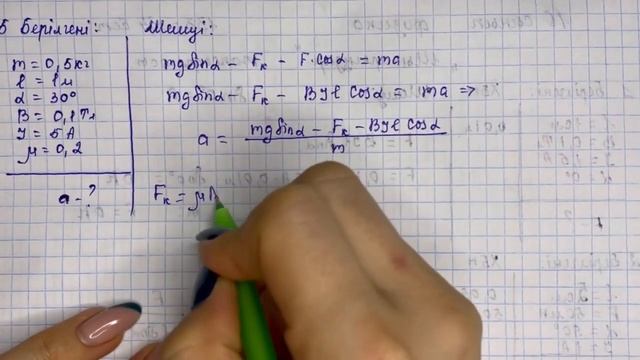 5 Берілгені:
Шешуі:
m = 0,5 кг
l = 1 м
α = 30°
B = 0,1 Тл
I = 5 А
μ = 0,2
a - ?
mg sinα - Fк - F·cosα = ma
mg sinα - Fк - BIl cosα = ma =>
a = (mg sinα - Fк - BIl cosα) / m
Fк = μ